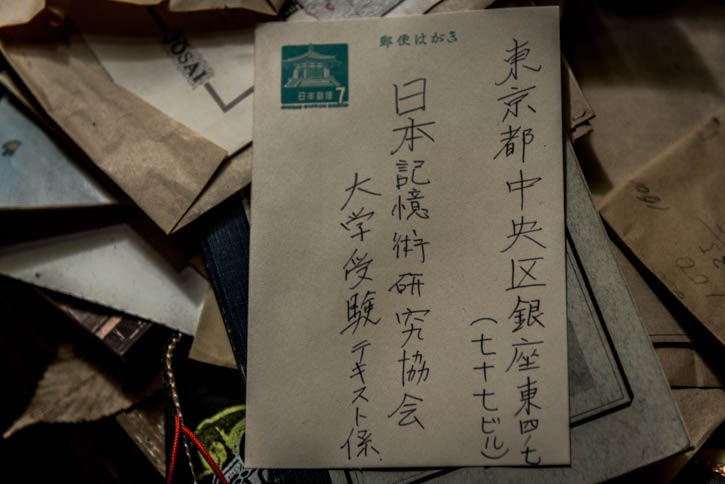 郵便はがき
日本郵便
7
東京都中央区銀座東四ノ七
(七十七ビル)
日本記憶術研究協会
大学受験テキスト係
JOSAI
160